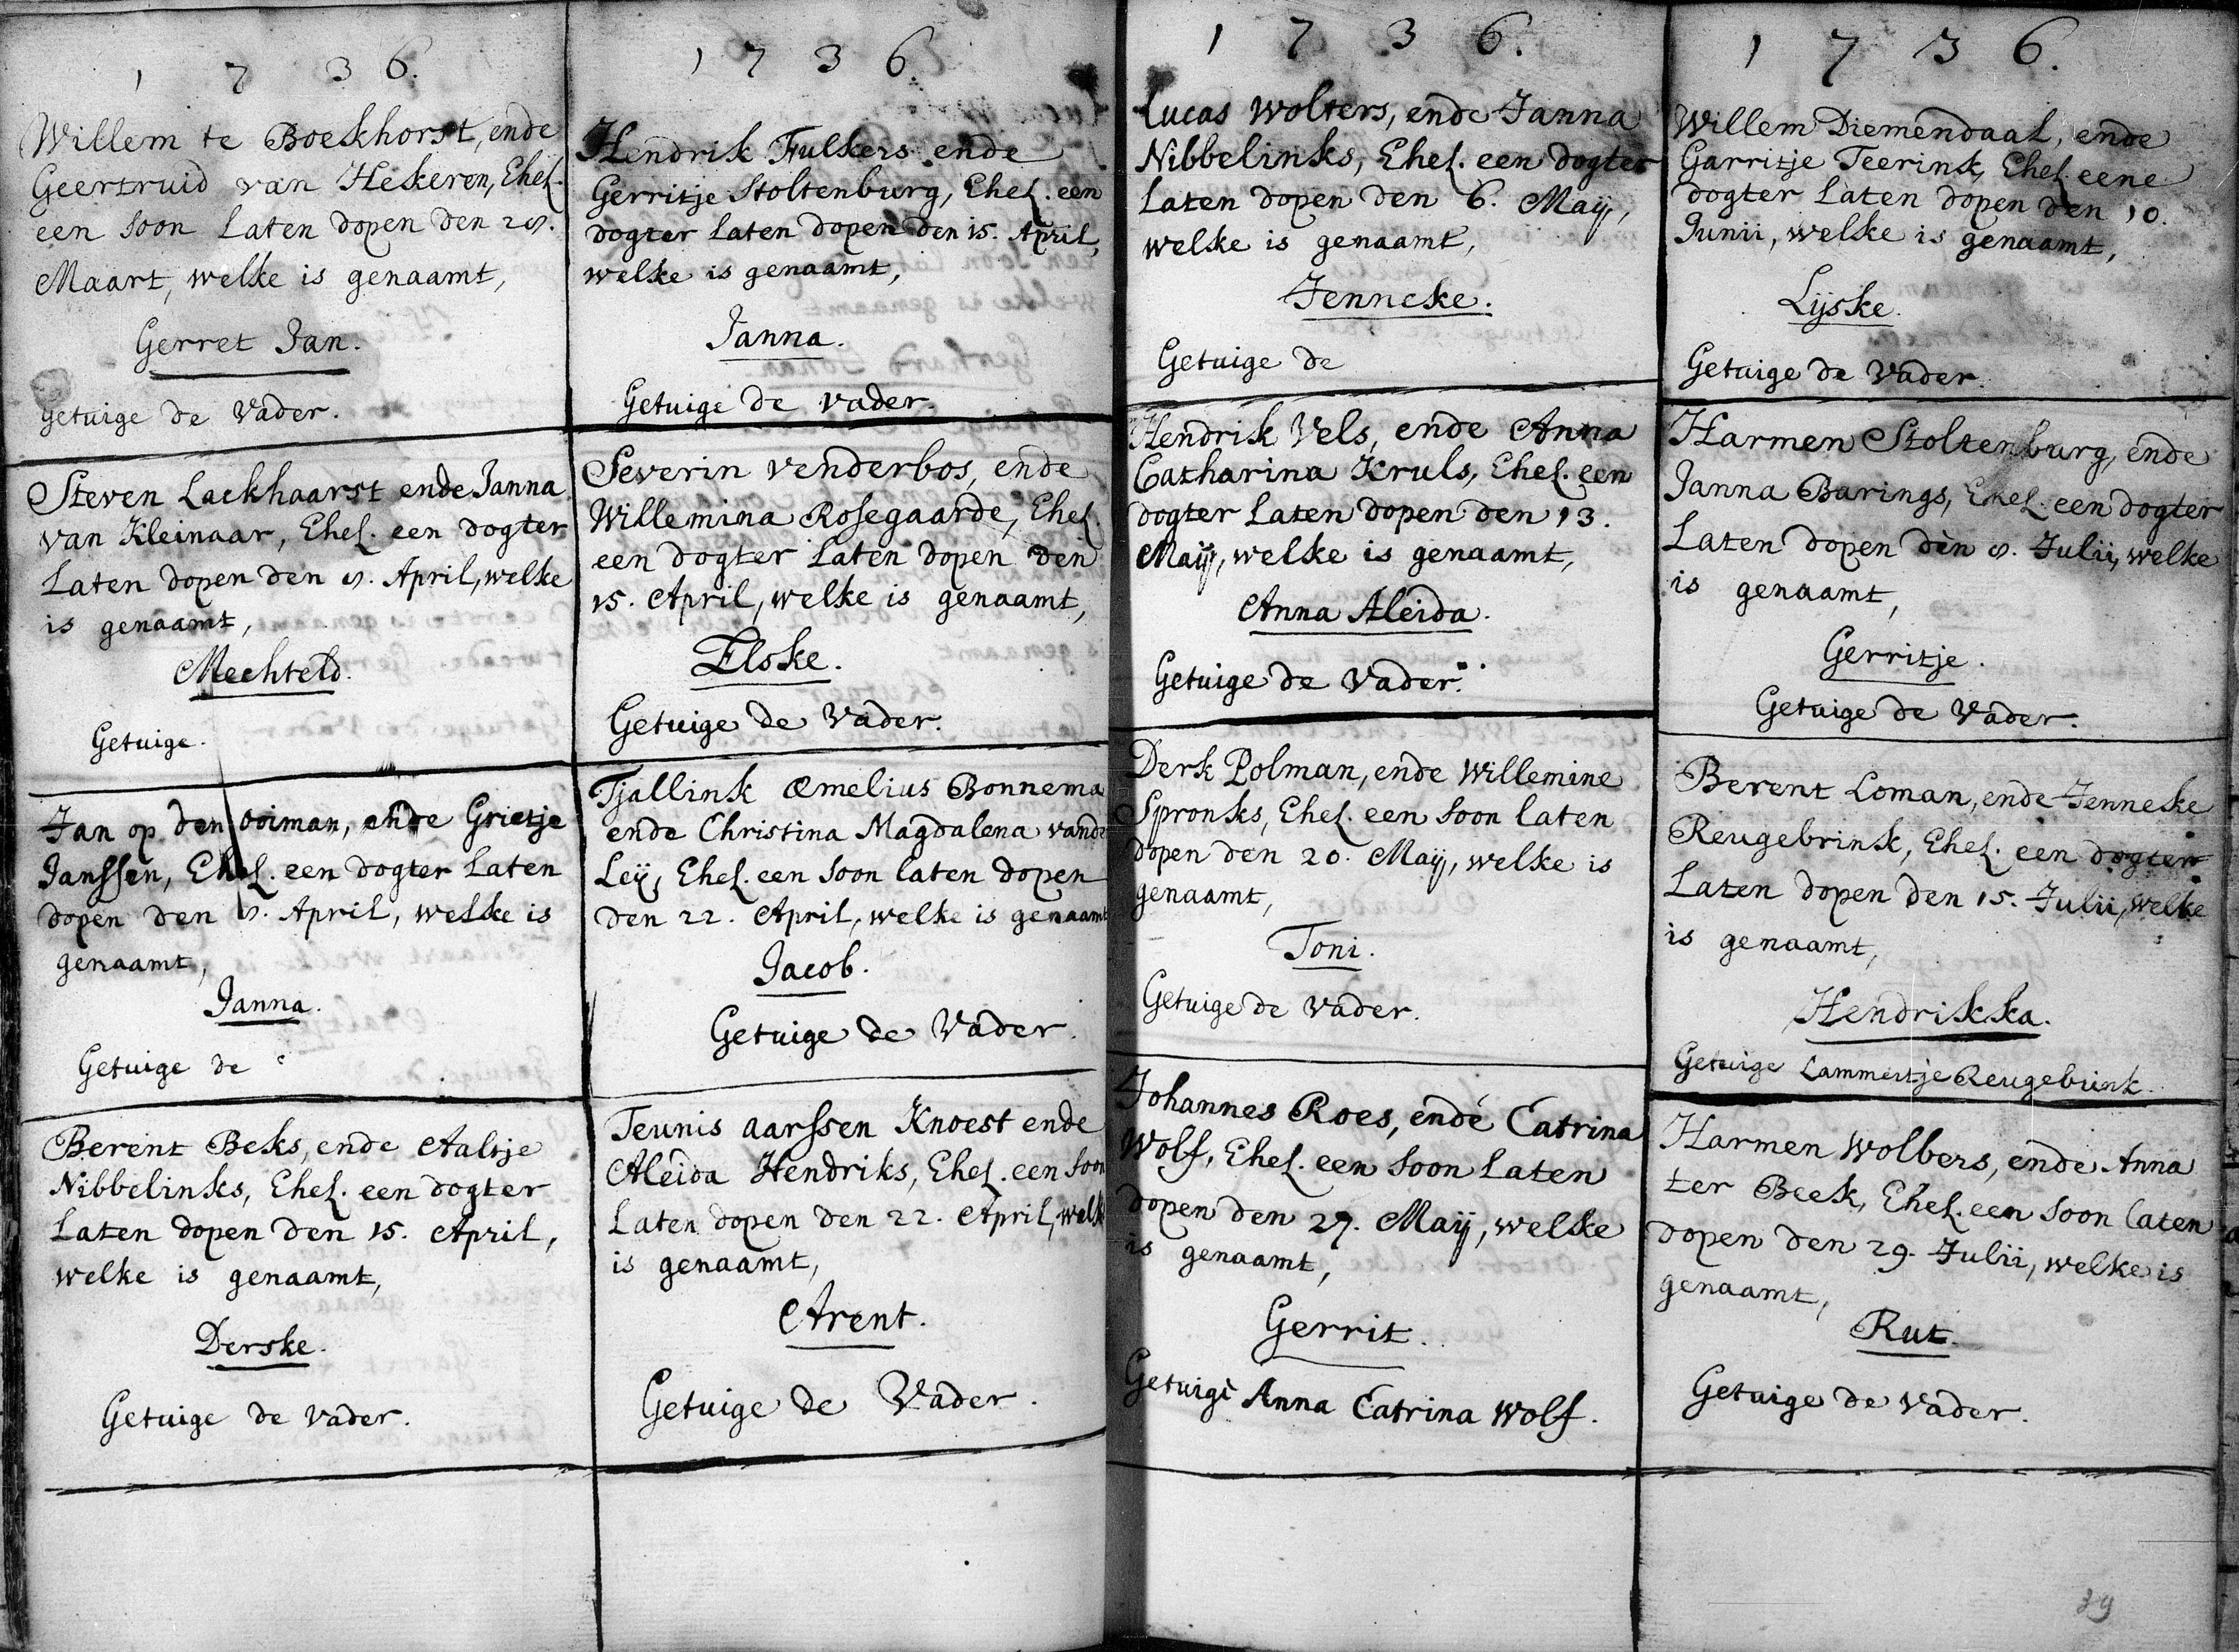 1736.
Willem te Boekhorst, ende
Geertruid van Hekeren, Ehel.
een soon laten dopen den 28.
Maart, welke is genaamt,
Gerret Jan.
getuige de Vader.
Steven Lackhaarst ende Janna
van Kleinaar, Ehel. een dogter
laten dopen den 8. April, welke
is genaamt,
Mechteld.
Getuige.
Jan op den ooiman, ende Grietje
Janssen, Ehel. een dogter laten
dopen den 8. April, welke is
genaamt,
Janna.
Getuige de
Berent Beks, ende Aaltje
Nibbelinks, Ehel. een dogter
laten dopen den 15. April,
welke is genaamt,
Derske.
Getuige de vader.
1736.
Hendrik Fulkers ende
Gerritje Stoltenburg, Ehel. een
dogter laten dopen den 15. April,
welke is genaamt,
Janna.
Getuige de vader.
Severin venderbos, ende
Willemina Rosegaarde, Ehel.
een dogter laten dopen den
15. April, welke is genaamt,
Elske.
Getuige de Vader.
Tjallink Æmelius Bonnema
ende Christina Magdalena vande
Leij, Ehel. een soon laten dopen
den 22. April, welke is genaamt
Jacob.
Getuige de Vader.
Teunis Aarssen Knoest ende
Aleida Hendriks, Ehel. een soon
laten dopen den 22. April, welk
is genaamt,
Arent.
Getuige de Vader.
1736.
Lucas Wolters, ende Janna
Nibbelinks, Ehel. een dogter
laten dopen den 6. Maij,
welke is genaamt,
Jenneke.
Getuige de
Hendrik Vels, ende Anna
Catharina Kruls, Ehel. een
dogter laten dopen den 13.
Maij, welke is genaamt,
Anna Aleida.
Getuige de Vader.
Derk Polman, ende Willemine
Spronks, Ehel. een soon laten
dopen den 20. Maij, welke is
genaamt,
Toni.
Getuige de Vader.
Johannes Roes, ende Catrina
Wolf, Ehel. een soon laten
dopen den 27. Maij, welke
is genaamt,
Gerrit.
Getuige Anna Catrina Wolf.
1736.
Willem Diemendaal, ende
Garritje Teerink, Ehel. eene
dogter laten dopen den 10.
Junii, welke is genaamt,
Lijske.
Getuige de Vader.
Harmen Stoltenburg, ende
Janna Barings, Ehel. een dogter
laten dopen den 8. Julii, welke
is genaamt,
Gerritje.
Getuige de Vader.
Berent Loman, ende Jenneke
Reugebrink, Ehel. een dogter
laten dopen den 15. Julii, welke
is genaamt,
Hendrikka.
Getuige Lammertje Reugebrink.
Harmen Wolbers, ende Anna
ter Beek, Ehel. een soon laten
dopen den 29. Julii, welke is
genaamt,
Rut.
Getuige de Vader.
39